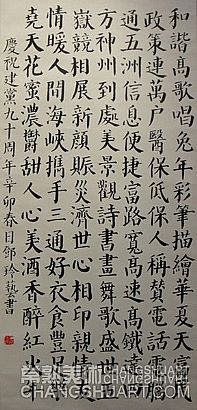 和諧高歌唱兔年彩筆描繪華夏天富
政策連萬戶醫保低保人稱贊電話電
通五洲信息便捷富路寬高速高鐵達
方神州到處美景觀詩書畫舞歌盛世
嶽競相展新顏賑災濟世心相印親情
情暖人間海峽攜手三通好衣食豐足
堯天花蜜濃鬱甜人心美酒香醉紅火
慶祝建黨九十周年辛卯春日邵玲藝書
常熟美術
CHANGSHUART.COM